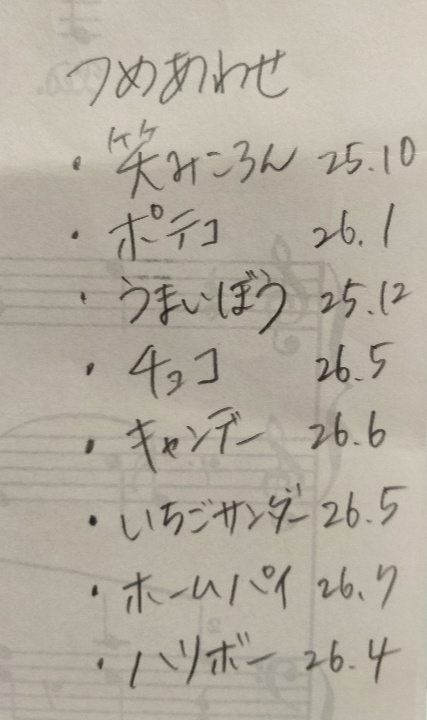 つめあわせ
・笑みころん 25.10
・ポテコ 26.1
・うまいぼう 25.12
・チョコ 26.5
・キャンデー 26.6
・いちごサンダー 26.5
・ホームパイ 26.7
・ハリボー 26.4